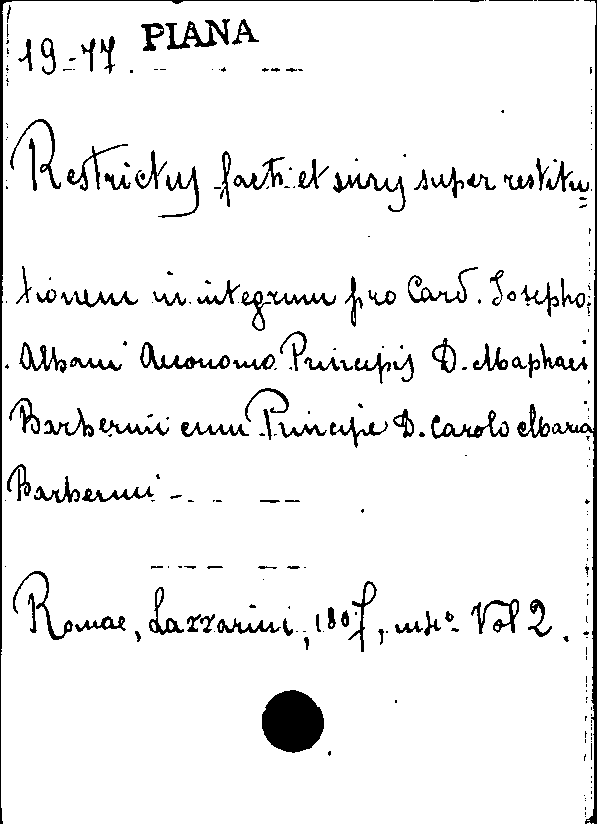 19-77 PIANA
Restrictus facti et iuris super restitu=
tionem in integrum pro Card. Josepho
Albani Aeconomo Principis D. Maphaei
Barberini cum Principe D. Carolo Maria
Barberini
Romae, Lazzarini, 1807, in 4º. Vol 2.